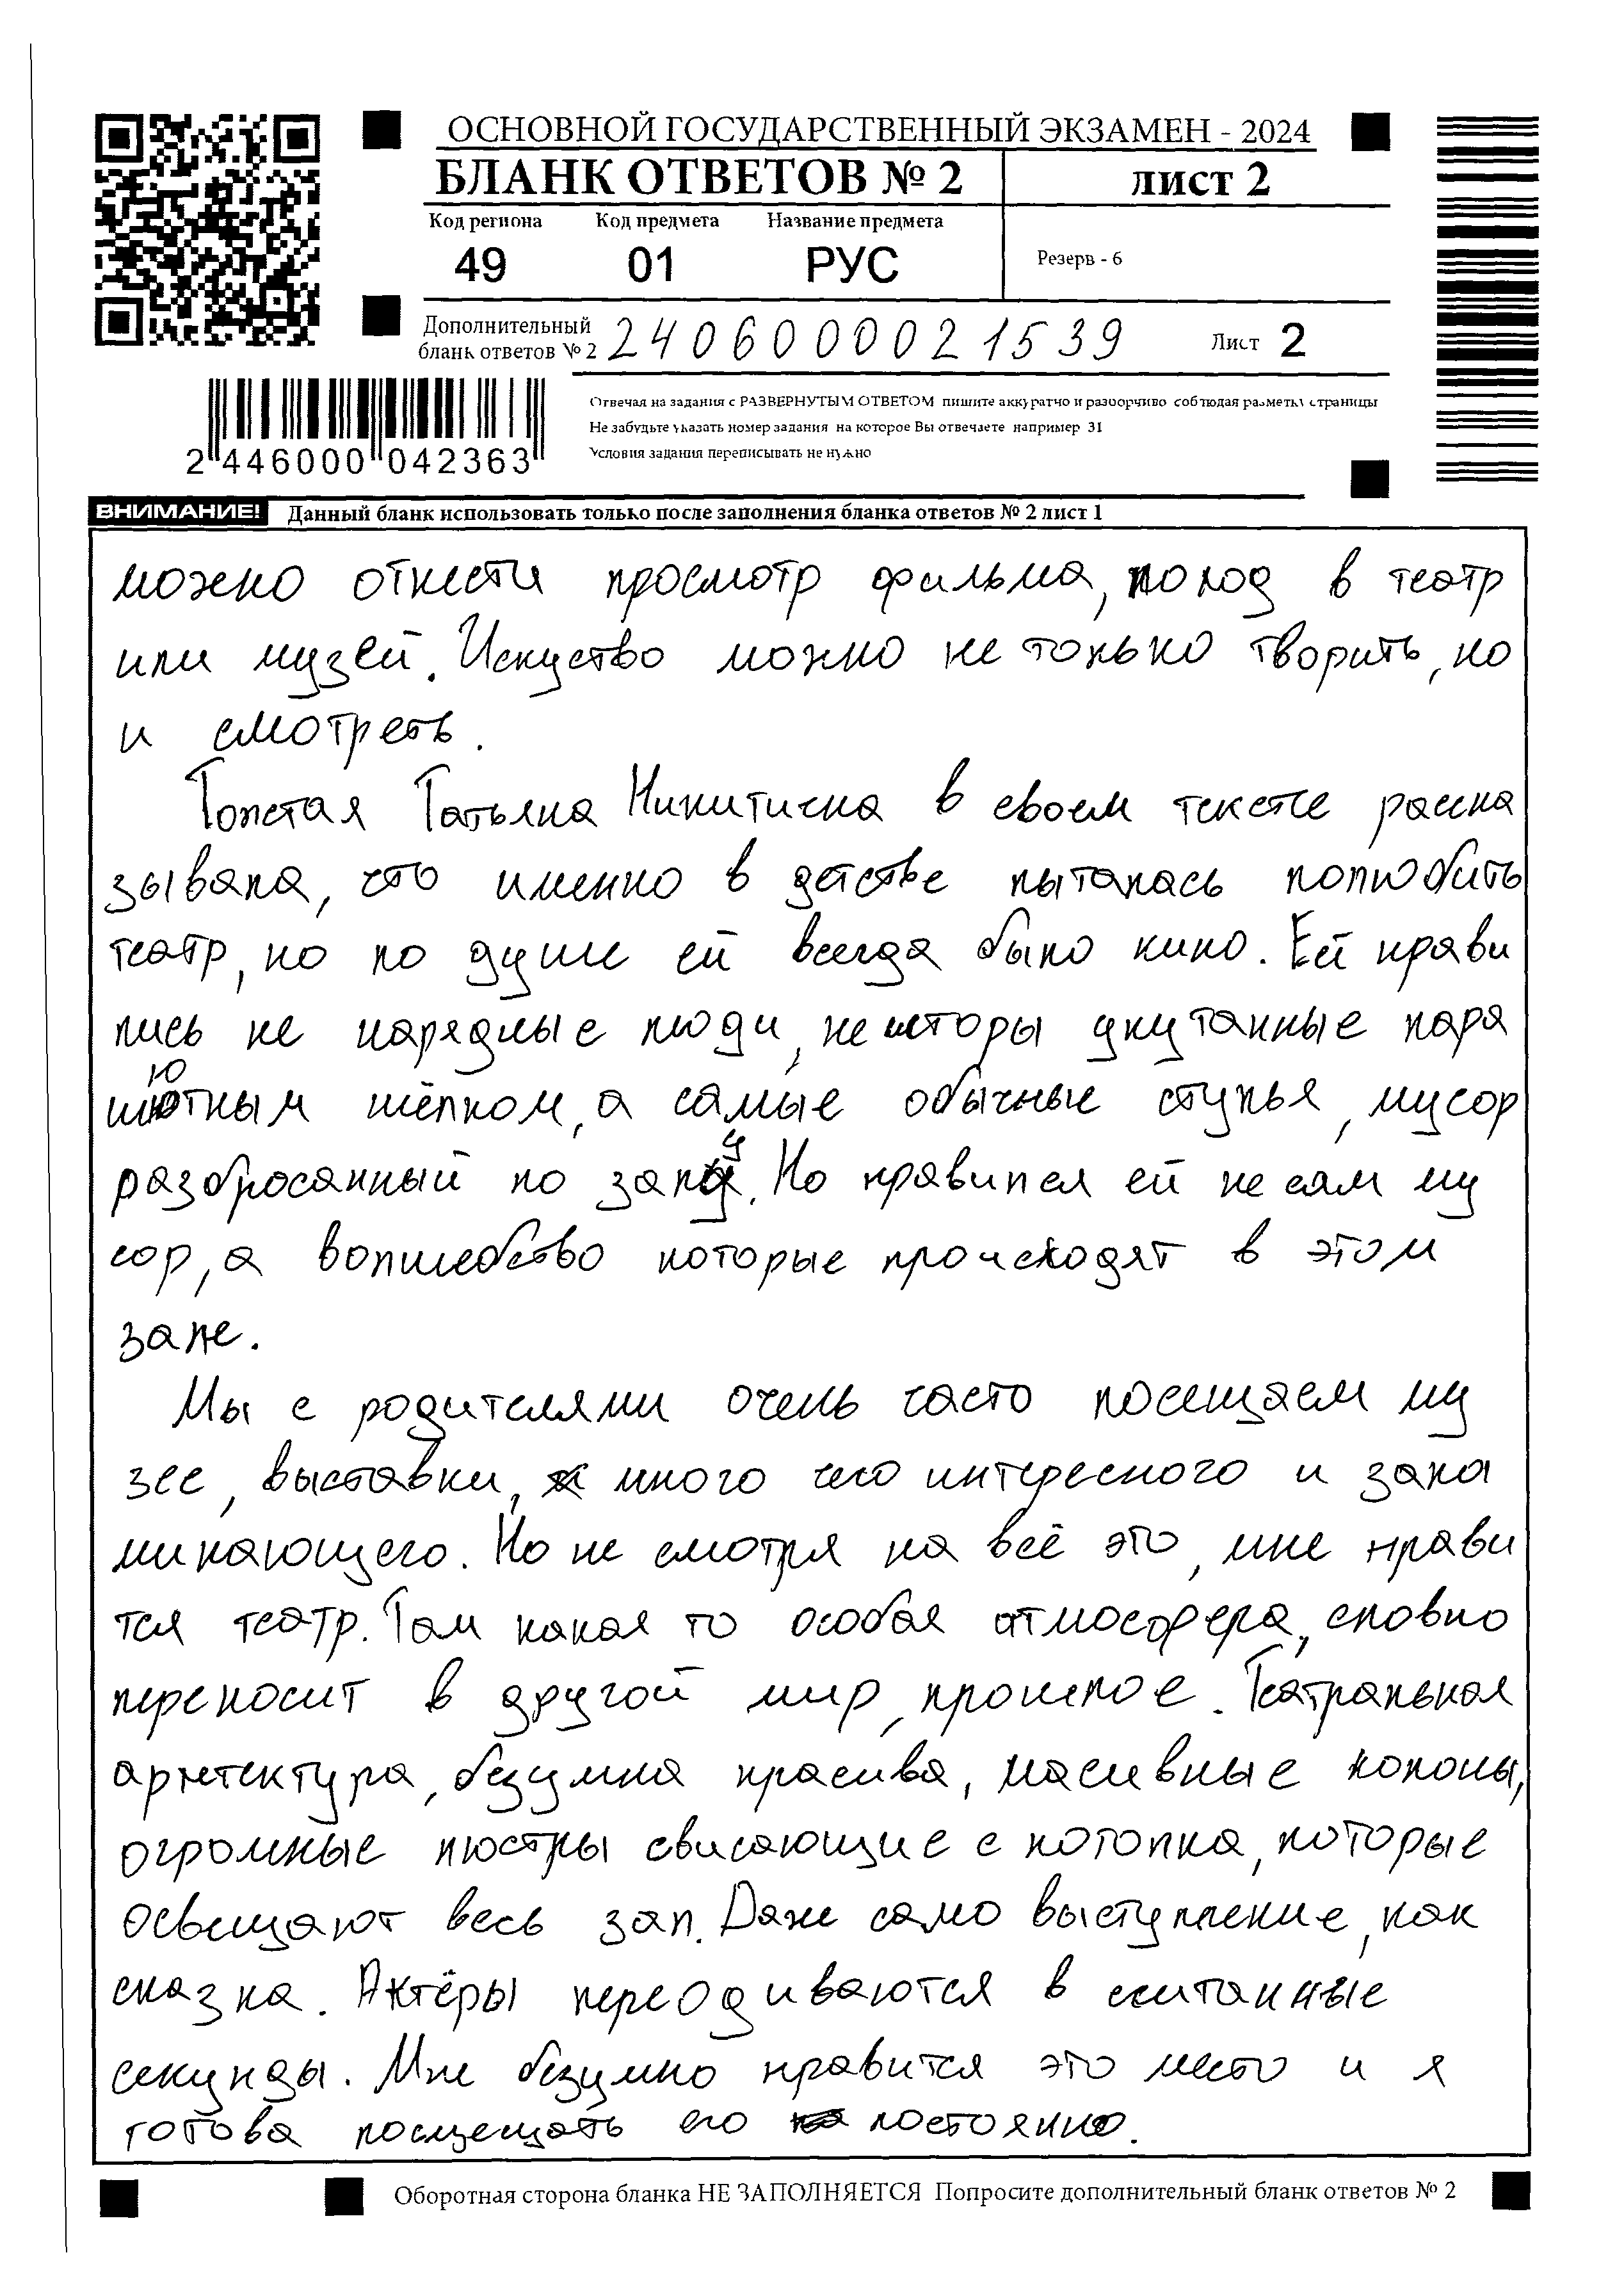 ОСНОВНОЙ ГОСУДАРСТВЕННЫЙ ЭКЗАМЕН - 2024
БЛАНК ОТВЕТОВ № 2
лист 2
Код региона Код предмета Название предмета
49 01 РУС
Резерв - 6
Дополнительный
бланк ответов № 2 2406000021539
Лист 2
Отвечая на задания с РАЗВЕРНУТЫМ ОТВЕТОМ пишите аккуратно и разборчиво соблюдая разметку страницы
Не забудьте указать номер задания на которое Вы отвечаете например 31
Условия задания переписывать не нужно
2 446000 042363
ВНИМАНИЕ! Данный бланк использовать только после заполнения бланка ответов № 2 лист 1
можно отнести просмотр фильма, поход в театр
или музей. Искуство можно не только творить, но
и смотреть.
Толстая Татьяна Никитична в своем тексте расска
зывала, что именно в детстве пыталась полюбить
театр, но по душе ей всегда было кино. Ей нрави
лись не нарядные люди, не шторы укутанные пара
шютным шёлком, а самые обычные стулья, мусор
разбросанный по залу. Но нравился ей не сам му
сор, а волшебство которые происходят в этом
зале.
Мы с родителями очень часто посещаем му
зее, выставки, много чего интересного и запа
минающего. Но не смотря на всё это, мне нрави
тся театр. Там какая то особая атмосфера, словно
переносит в другой мир, прошлое. Театральная
архетектура, безумна красива, масивные колоны,
огромные люстры свисающие с потолка, которые
освещают весь зал. Даже само выступление, как
сказка. Актёры переодиваются в считанные
секунды. Мне безумно нравится это место и я
готова посещать его постоянно.
Оборотная сторона бланка НЕ ЗАПОЛНЯЕТСЯ Попросите дополнительный бланк ответов № 2